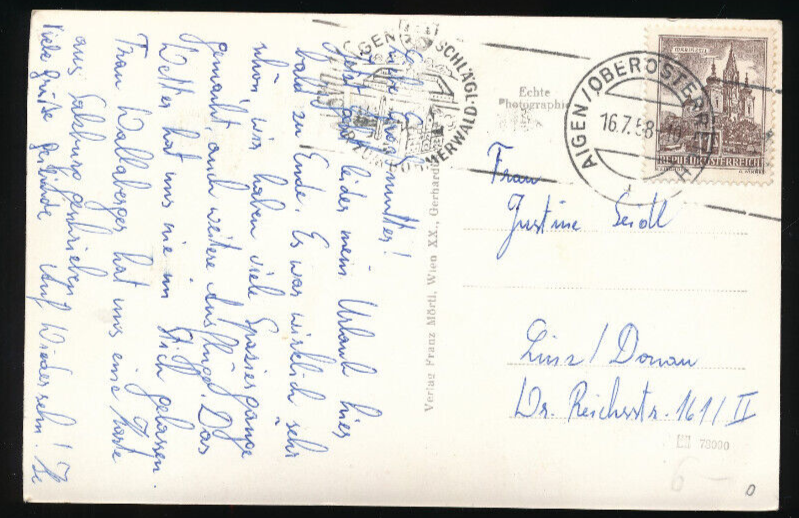 Liebe Großmutter!
Jetzt geht leider mein Urlaub hier
bald zu Ende. Es war wirklich sehr
schön, wir haben viele Spaziergänge
gemacht, auch weitere Ausflüge. Das
Wetter hat uns nie im Stich gelassen.
Frau Wallaberger hat uns eine Karte
aus Salzburg geschrieben.
Auf Wiedersehn!
Viele Grüße
AIGEN SCHLÄGL
BÖHMERWALD
Echte
Photographie
AIGEN/OBERÖSTERREICH
16.7.58
REPUBLIK ÖSTERREICH
Verlag Franz Mörtl, Wien XX., Gerhard
Frau
Justine Seidl
Linz/Donau
Wr. Reichsstr. 161/II
78090
6-
0